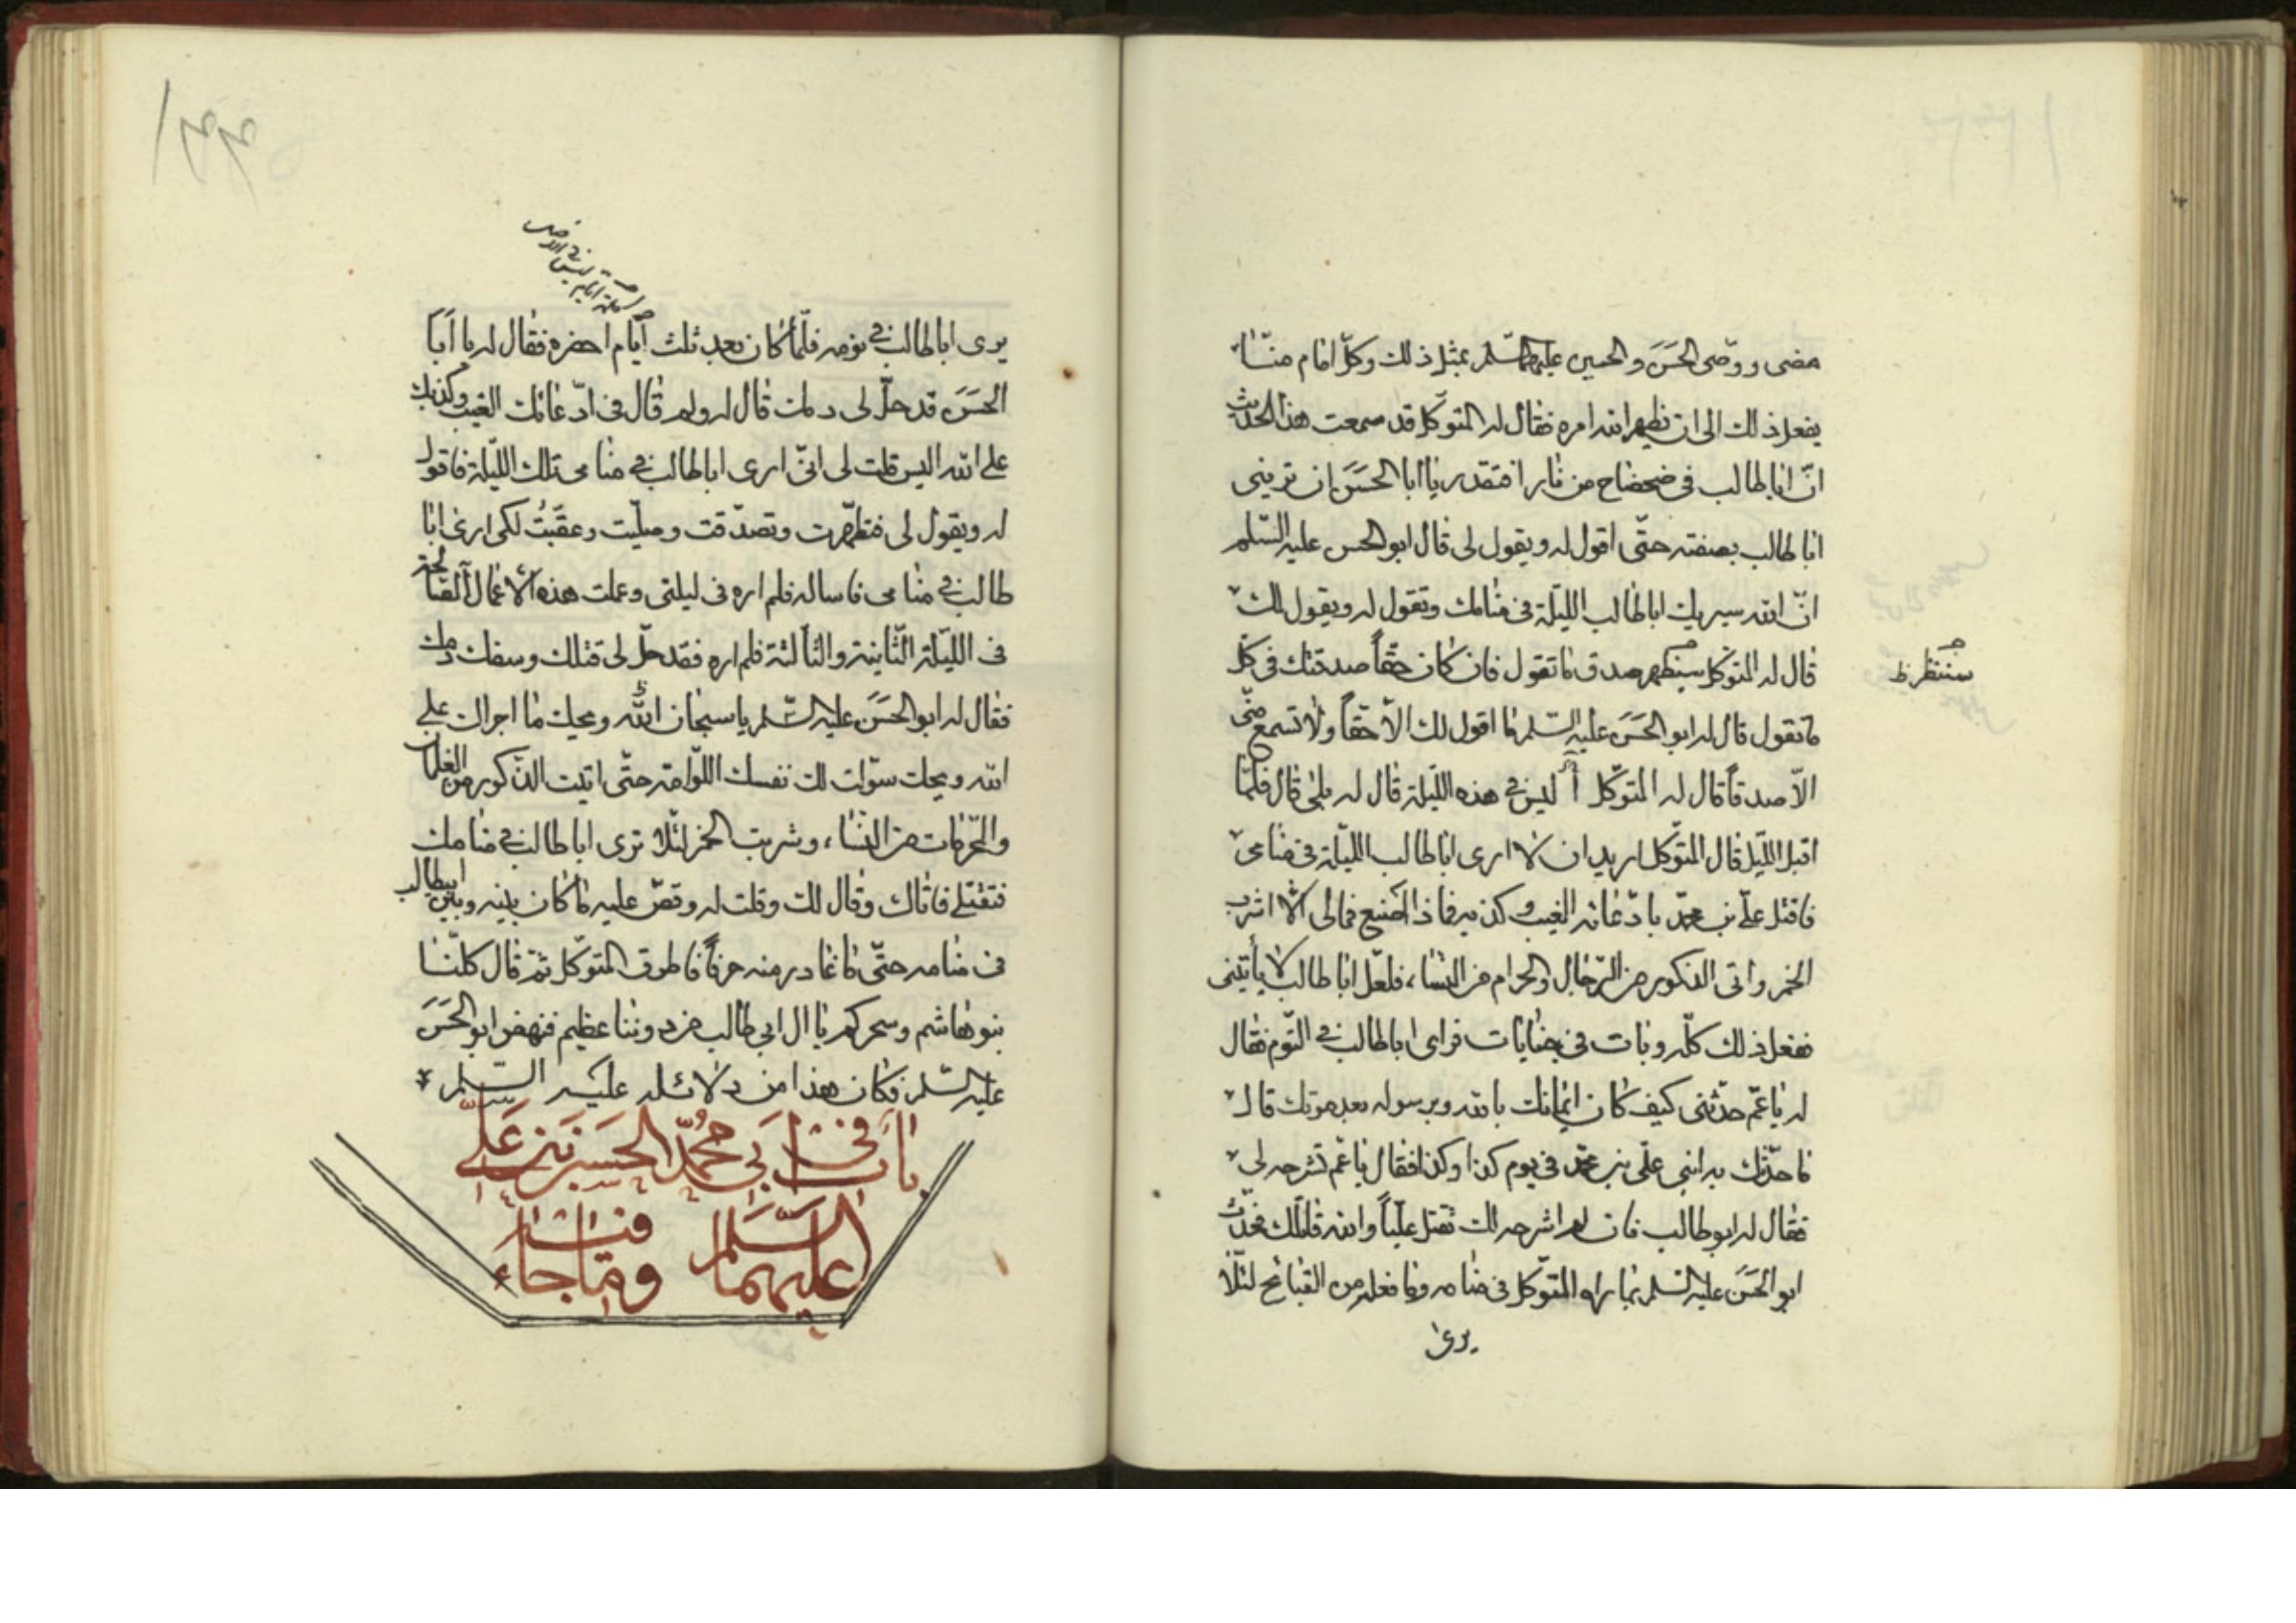 مضى ووصّى الحسن والحسين عليهما السّلم بمثل ذلك وكلّ امام منّا
يفعل ذلك الى ان يظهر الله امره فقال له المتوكّل قد سمعت هذا الحديث
انّ ابا طالب في ضحضاح من نار افتقدر يا ابا الحسن ان تريني
ابا طالب بصفته حتّى اقول له ويقول لى قال ابو الحسن عليه السّلم
انّ الله سيريك ابا طالب الليلة في منامك وتقول له ويقول لك
قال له المتوكّل سيظهر صدق ما تقول فان كان حقّاً صدقتك في كلّ
سننتظر ظ
ما تقول قال له ابو الحسن عليه السّلم ما اقول لك الّا حقّاً ولا تسمع منّي
الّا صدقاً قال له المتوكّل أليس في هذه اللّيلة قال له بلى قال فلمّا
اقبل اللّيل قال المتوكّل اريد ان لا ارى ابا طالب الليلة في منامى
فاقتل علىّ بن محمّد بادّعائه الغيب وكذبه فماذا اصنع فمالى الّا اشرب
الخمر واتى الذكور من الرّجال والحرام من النساء فلعلّ ابا طالب لا يأتينى
ففعل ذلك كلّه وبات في جنابات فراى ابا طالب في النّوم فقال
له يا عمّ حدّثنى كيف كان ايمانك بالله وبرسوله بعد موتك قال
ما حدّثك به ابنى علّى بن محمّد في يوم كذا وكذا فقال يا عمّ تشرحه لى
فقال له ابو طالب فان لم اشرحه لك تقتل عليّاً والله قاتلك فحدّث
ابو الحسن عليه السّلم بما راه المتوكّل في منامه وما فعله من القبائح لئلّا
يرى
يرى ابا طالب في نومه فلمّا كان بعد ثلث ايّام احضره فقال له يا ابا
الحسن قد حلّ لى دمك قال له ولم قال في ادّعائك الغيب وكذبك
على الله اليس قلت لى انّى ارى ابا طالب في منامى تلك اللّيلة فاقول
له ويقول لى فتطهّرت وتصدّقت وصلّيت وعقّبت لكى ارى ابا
طالب في منامى فاساله فلم اره في ليلتى وعملت هذه الاعمال الصّالحة
في الليلة الثّانية والثّالثة فلم اره فقد حلّ لى قتلك وسفك دمك
فقال له ابو الحسن عليه السّلم يا سبحان الله ويحك ما اجراك على
الله ويحك سوّلت لك نفسك اللوّامة حتّى اتيت الذّكور من الغلمان
والمحرّمات من النّساء وشربت الخمر لئلّا ترى ابا طالب في منامك
فتقتلنى فاتاك وقال لك وقلت له وقصّ عليه ما كان بينه وبين ابيطالب
في منامه حتّى ما غادر منه حرفاً فاطرق المتوكّل ثمّ قال كلّنا
بنو هاشم وسحركم يا ال ابي طالب من دوننا عظيم فنهض ابو الحسن
عليه السّلم فكان هذا من دلائله عليه السّلم
باب في ابي محمّد الحسن بن علىّ
عليهما السّلم وممّا جاء